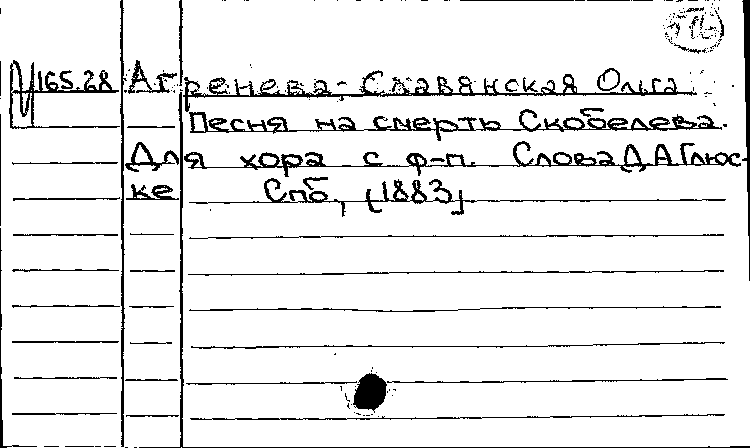 165.28 Агренева-Славянская Ольга
Песня на смерть Скобелева.
Для хора с ф-п. Слова Д.А.Глюс-
ке Спб, [1883]